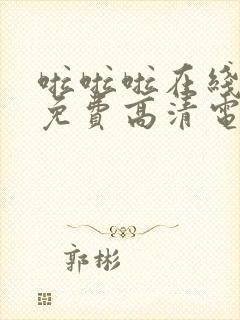 啦啦啦在线
免费高清電
郭彬